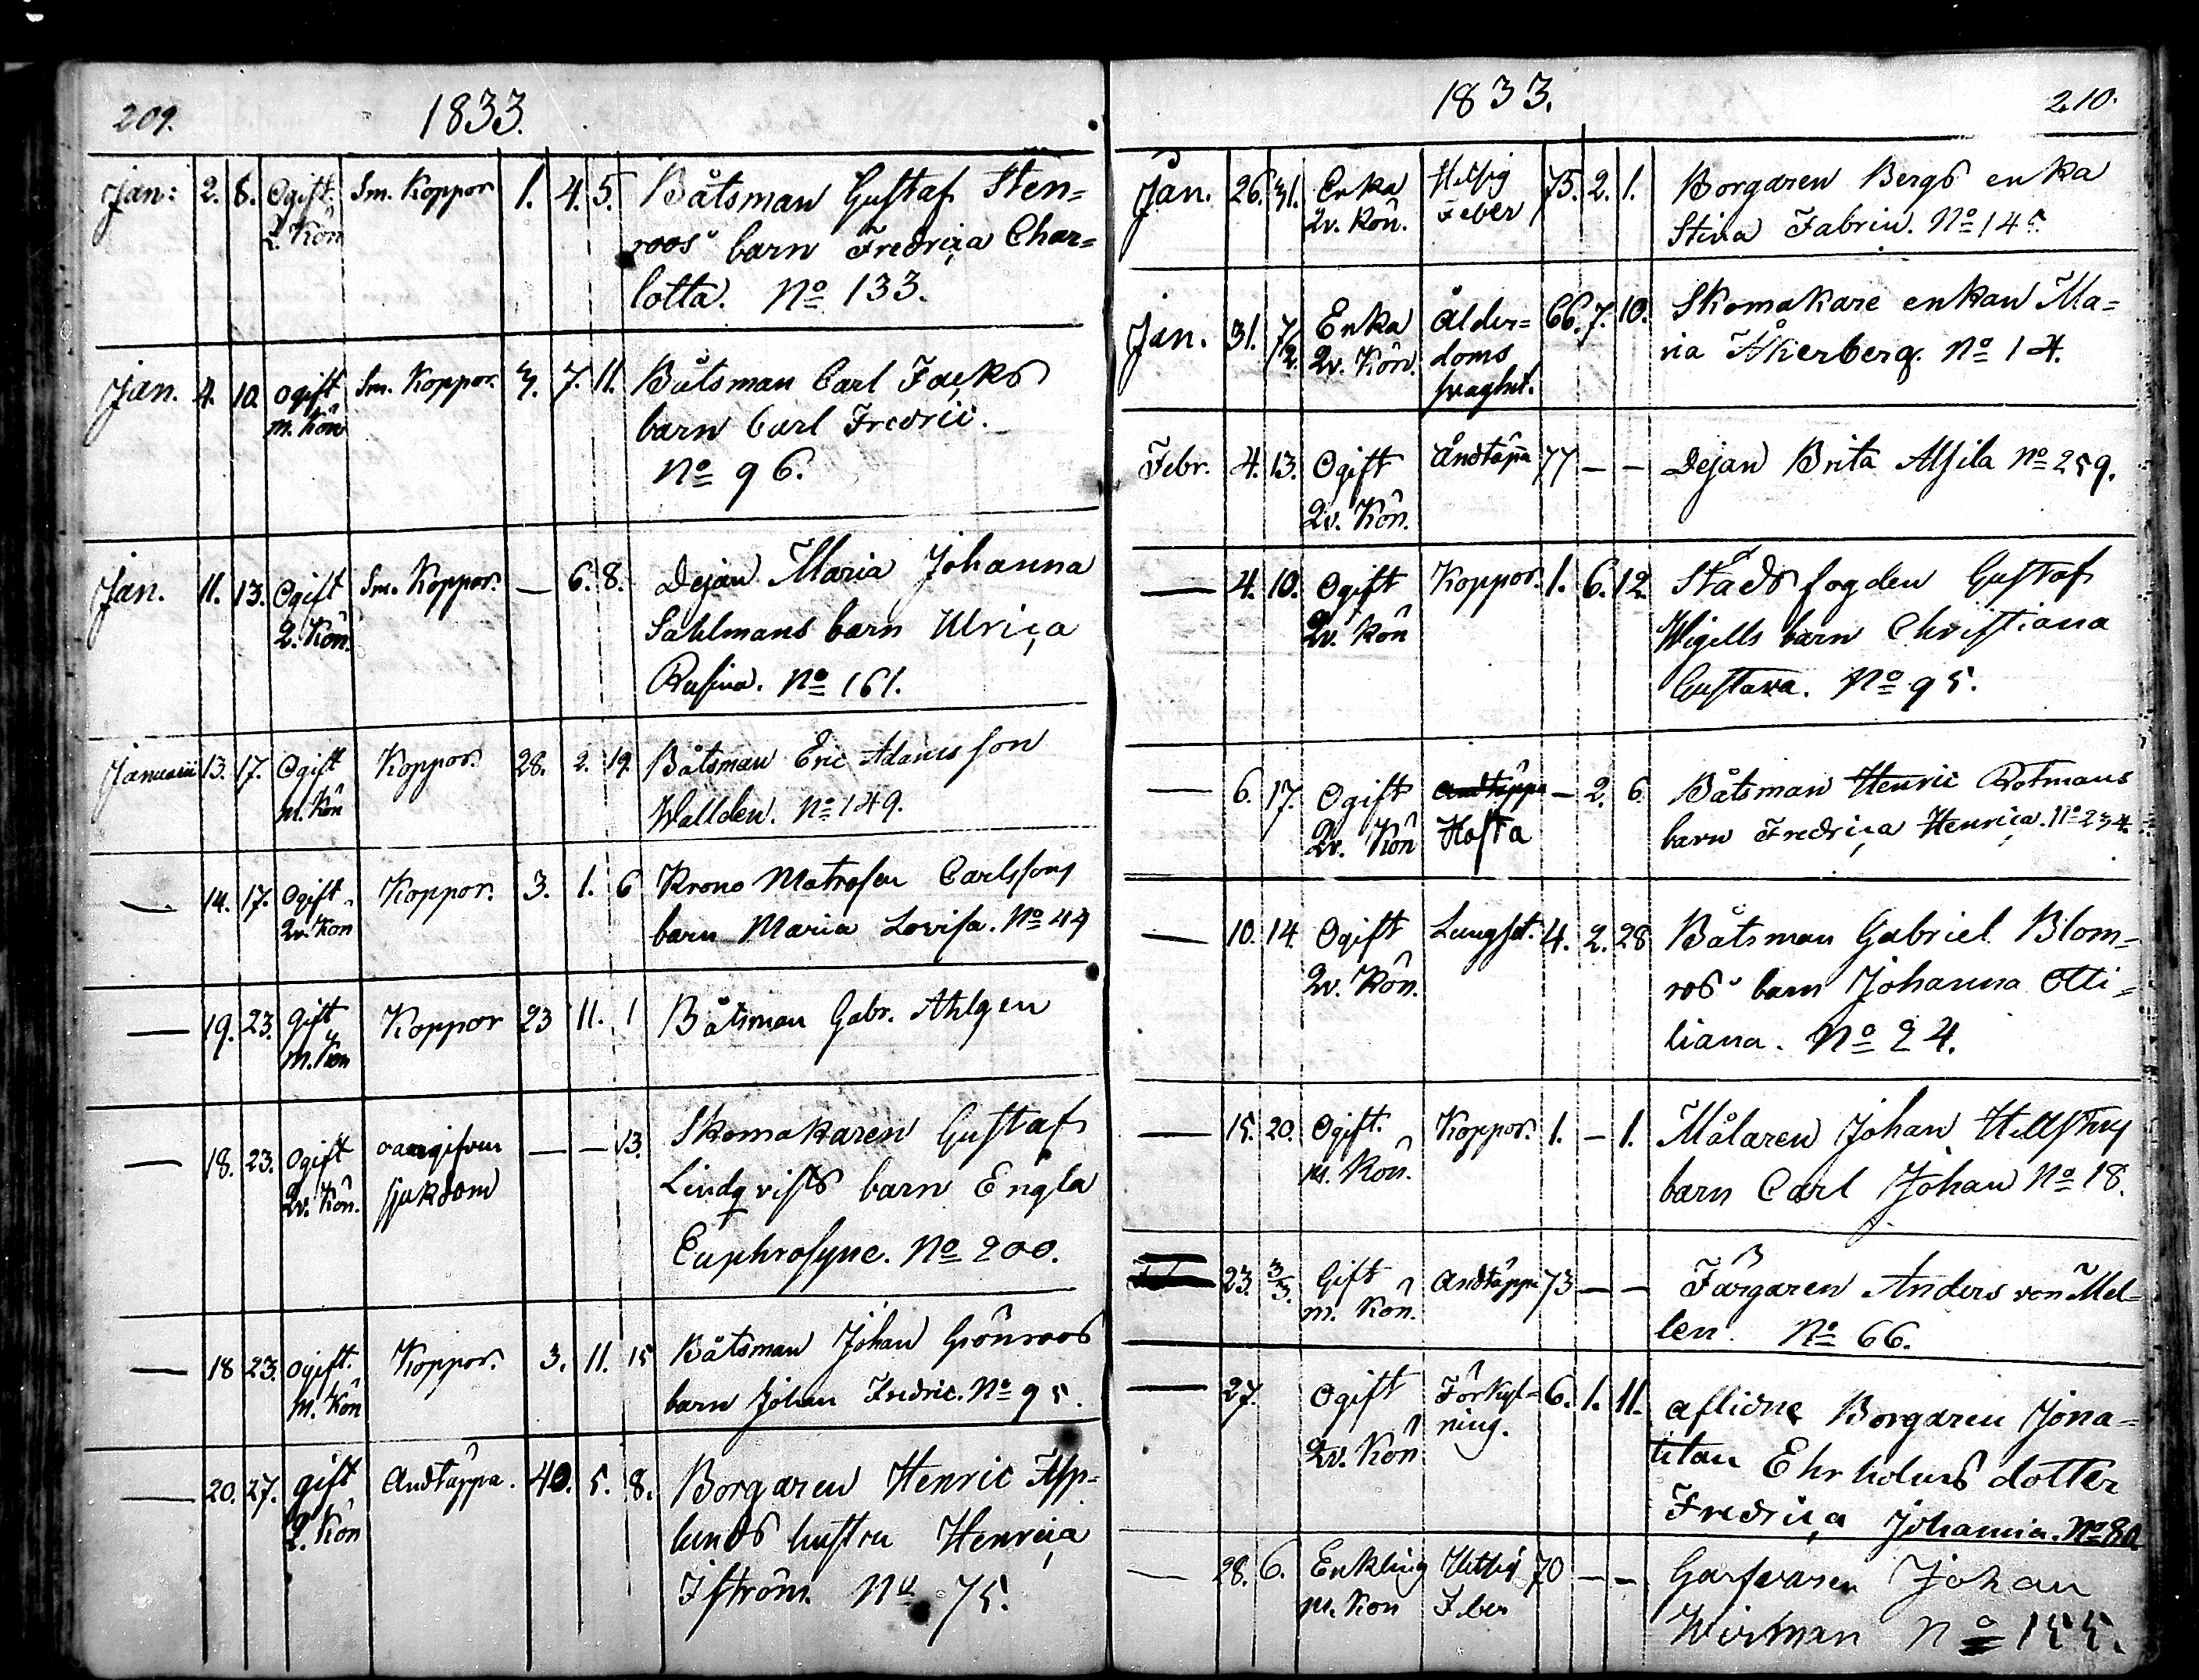 209.
1833.
Jan: 2. 6. Ogift Sm. Koppor 1. 4. 5. Båtsman Gustaf Sten=
q. Kön roos' barn Fredrica Char=
lotta. No 133.
Jan. 4. 10. Ogift Sm. Koppor. 3. 7. 11. Båtsman Carl Jacks
m. Kön barn Carl Fredric.
No 96.
Jan. 11. 13. Ogift Sm. Koppor. — 6. 8. Dejan Maria Johanna
Q. Kön. Sahlmans barn Ulrica
Rusina. No 161.
Januarii 13. 17. Ogift Koppor. 28. 2. 19. Båtsman Eric Adamsson
m. Kön Wallden. No 149.
— 14. 17. Ogift Koppor. 3. 1. 6 Krono Matrosen Carlssons
Qv. Kön barn Maria Lovisa. No 44
— 19. 23. gift Koppor 23 11. 1 Båtsman Gabr. Ahlgen
m. Kön
— 18. 23. Ogift oangifven — — 13. Skomakaren Gustaf
Qv. Kön. sjukdom Lindqvists barn Engla
Euphrosyne. No 200.
— 18 23. Ogift. Koppor. 3. 11. 15 Båtsman Johan Grönroos
m. Kön barn Johan Fredric. No 95.
— 20. 27. gift Andtäppa. 40. 5. 8. Borgaren Henric Asp=
Q. Kön lunds hustru Henrica
Iström. No 75.
1833.
210.
Jan. 26. 31. Enka Hetsig 75. 2. 1. Borgaren Bergs enka
Qv. Kön. Feber Stina Fabrin. No 145.
Jan. 31. 7/2. Enka Ålder= 66. 7. 10. Skomakare enkan Ma=
Qv. Kön. doms ria Åkerberg. No 14.
svaghet.
Febr. 4. 13. Ogift Andtäppa 77 — — Dejan Brita Alsila No 259.
Qv. Kön.
— 4. 10. Ogift Koppor. 1. 6. 12. Stads fogden Gustaf
Qv. Kön Wigells barn Christiana
Gustava. No 95.
— 6. 17. Ogift Andtäppa — 2. 6. Båtsman Henric Rotmans
Qv. Kön Hosta barn Fredrica Henrica. No 234.
— 10. 14. Ogift Lungsot. 4. 2. 28 Båtsman Gabriel Blom=
Qv. Kön. ros' barn Johanna Otti=
liana. No 24.
— 15. 20. Ogift. Koppor. 1. — 1. Målaren Johan Hellstens
m. Kön. barn Carl Johan No 18.
— 23. 3/3. Gift Andtäppa 73 — — Färgaren Anders von Mel=
m. Kön. len. No 66.
— 27. Ogift Förkyl= 6. 1. 11. aflidne Borgaren Jona=
Qv. Kön ning. titan Ehrholms dotter
Fredrica Johanna. No 80
— 28. 6. Enkling Hetsig 70 — — Garfvaren Johan
m. Kön Feber Wirman No 155.